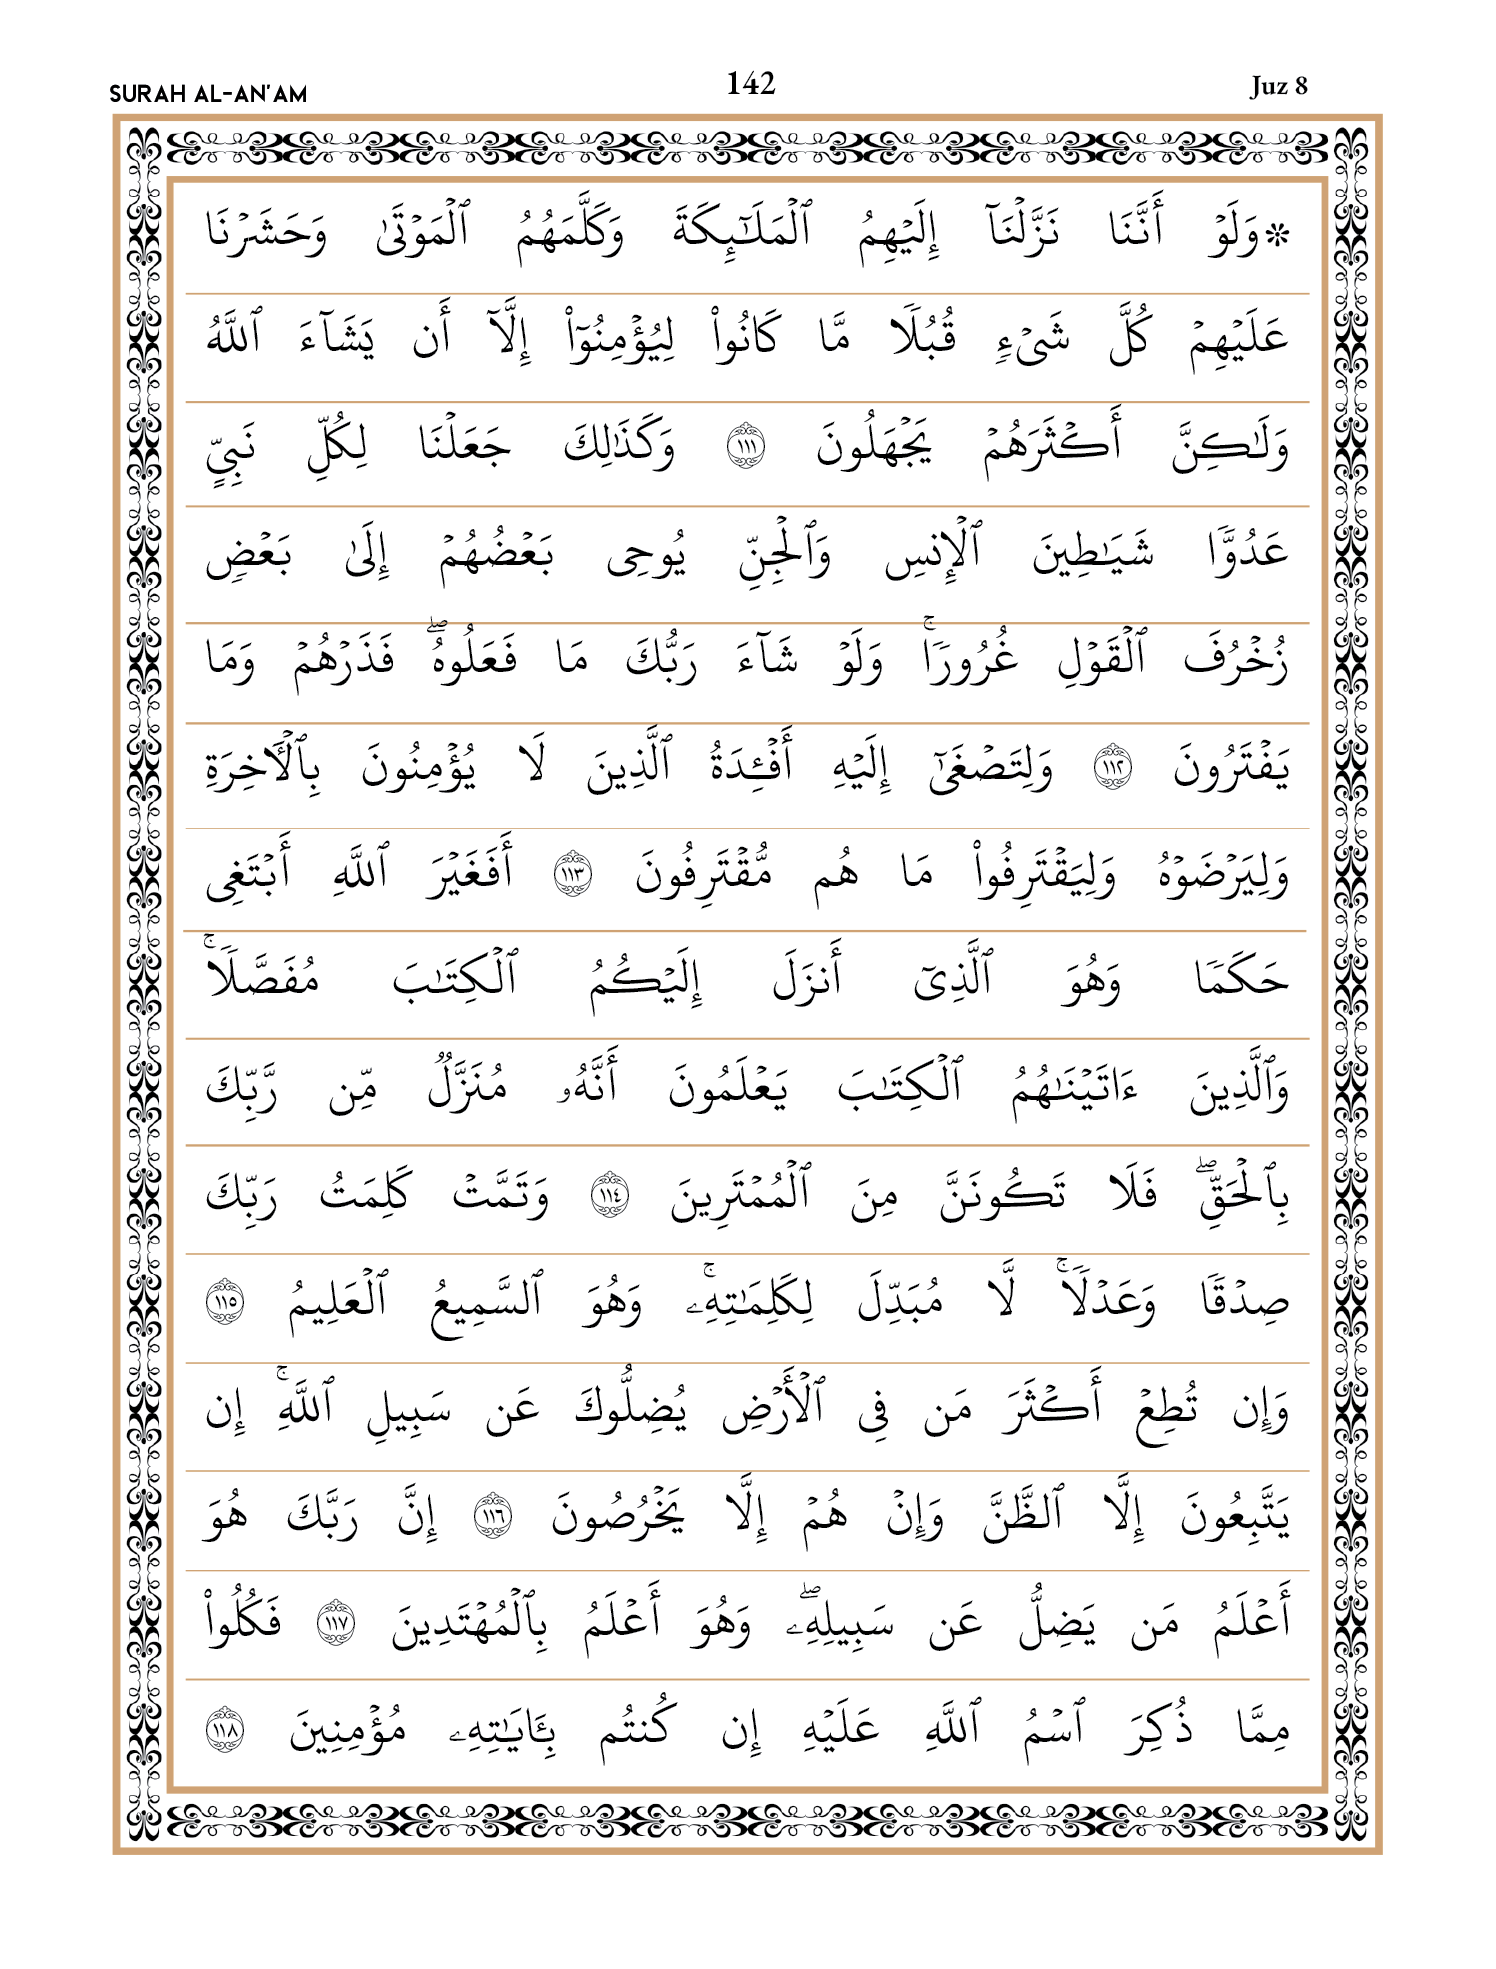 SURAH AL-AN'AM 142 Juz 8
۞ وَلَوۡ أَنَّنَا نَزَّلۡنَآ إِلَيۡهِمُ ٱلۡمَلَٰٓئِكَةَ وَكَلَّمَهُمُ ٱلۡمَوۡتَىٰ وَحَشَرۡنَا
عَلَيۡهِمۡ كُلَّ شَيۡءٖ قُبُلٗا مَّا كَانُواْ لِيُؤۡمِنُوٓاْ إِلَّآ أَن يَشَآءَ ٱللَّهُ
وَلَٰكِنَّ أَكۡثَرَهُمۡ يَجۡهَلُونَ ١١١ وَكَذَٰلِكَ جَعَلۡنَا لِكُلِّ نَبِيٍّ
عَدُوّٗا شَيَٰطِينَ ٱلۡإِنسِ وَٱلۡجِنِّ يُوحِي بَعۡضُهُمۡ إِلَىٰ بَعۡضٖ
زُخۡرُفَ ٱلۡقَوۡلِ غُرُورٗاۚ وَلَوۡ شَآءَ رَبُّكَ مَا فَعَلُوهُۖ فَذَرۡهُمۡ وَمَا
يَفۡتَرُونَ ١١٢ وَلِتَصۡغَىٰٓ إِلَيۡهِ أَفۡـِٔدَةُ ٱلَّذِينَ لَا يُؤۡمِنُونَ بِٱلۡأٓخِرَةِ
وَلِيَرۡضَوۡهُ وَلِيَقۡتَرِفُواْ مَا هُم مُّقۡتَرِفُونَ ١١٣ أَفَغَيۡرَ ٱللَّهِ أَبۡتَغِي
حَكَمٗا وَهُوَ ٱلَّذِيٓ أَنزَلَ إِلَيۡكُمُ ٱلۡكِتَٰبَ مُفَصَّلٗاۚ
وَٱلَّذِينَ ءَاتَيۡنَٰهُمُ ٱلۡكِتَٰبَ يَعۡلَمُونَ أَنَّهُۥ مُنَزَّلٞ مِّن رَّبِّكَ
بِٱلۡحَقِّۖ فَلَا تَكُونَنَّ مِنَ ٱلۡمُمۡتَرِينَ ١١٤ وَتَمَّتۡ كَلِمَتُ رَبِّكَ
صِدۡقٗا وَعَدۡلٗاۚ لَّا مُبَدِّلَ لِكَلِمَٰتِهِۦۚ وَهُوَ ٱلسَّمِيعُ ٱلۡعَلِيمُ ١١٥
وَإِن تُطِعۡ أَكۡثَرَ مَن فِي ٱلۡأَرۡضِ يُضِلُّوكَ عَن سَبِيلِ ٱللَّهِۚ إِن
يَتَّبِعُونَ إِلَّا ٱلظَّنَّ وَإِنۡ هُمۡ إِلَّا يَخۡرُصُونَ ١١٦ إِنَّ رَبَّكَ هُوَ
أَعۡلَمُ مَن يَضِلُّ عَن سَبِيلِهِۦۖ وَهُوَ أَعۡلَمُ بِٱلۡمُهۡتَدِينَ ١١٧ فَكُلُواْ
مِمَّا ذُكِرَ ٱسۡمُ ٱللَّهِ عَلَيۡهِ إِن كُنتُم بِـَٔايَٰتِهِۦ مُؤۡمِنِينَ ١١٨